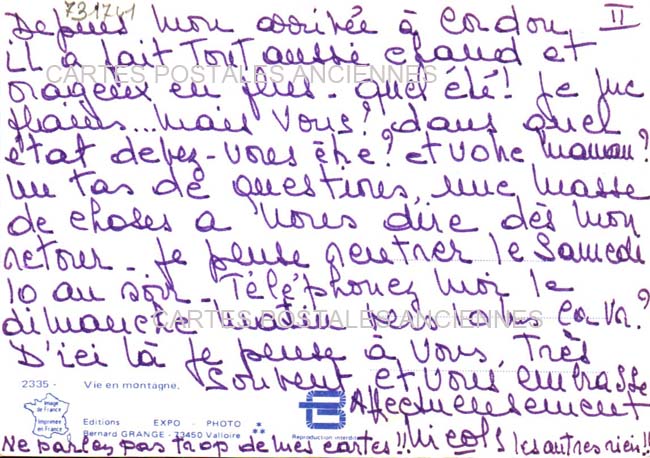 731741
II
Depuis mon arrivée à Cordon
il a fait tout aussi chaud et
CARTES POSTALES ANCIENNES
orageux en plus - quel été! Je me
plains... mais vous? dans quel
état devez-vous être? et votre maman?
un tas de questions, une masse
de choses a vous dire dès mon
retour - je pense rentrer le Samedi
10 au soir - Téléphonez moi le
dimanche matin vers
CARTES POSTALES ANCIENNES
D'ici là je pense à vous, très
souvent et vous embrasse
Affectueusement
2335 - Vie en montagne.
Image de France
Imprimée en France
Editions EXPO - PHOTO **
Bernard GRANGE - 73450 Valloire
Reproduction interdite
Ne parlez pas trop de mes cartes!! les autres rien!!